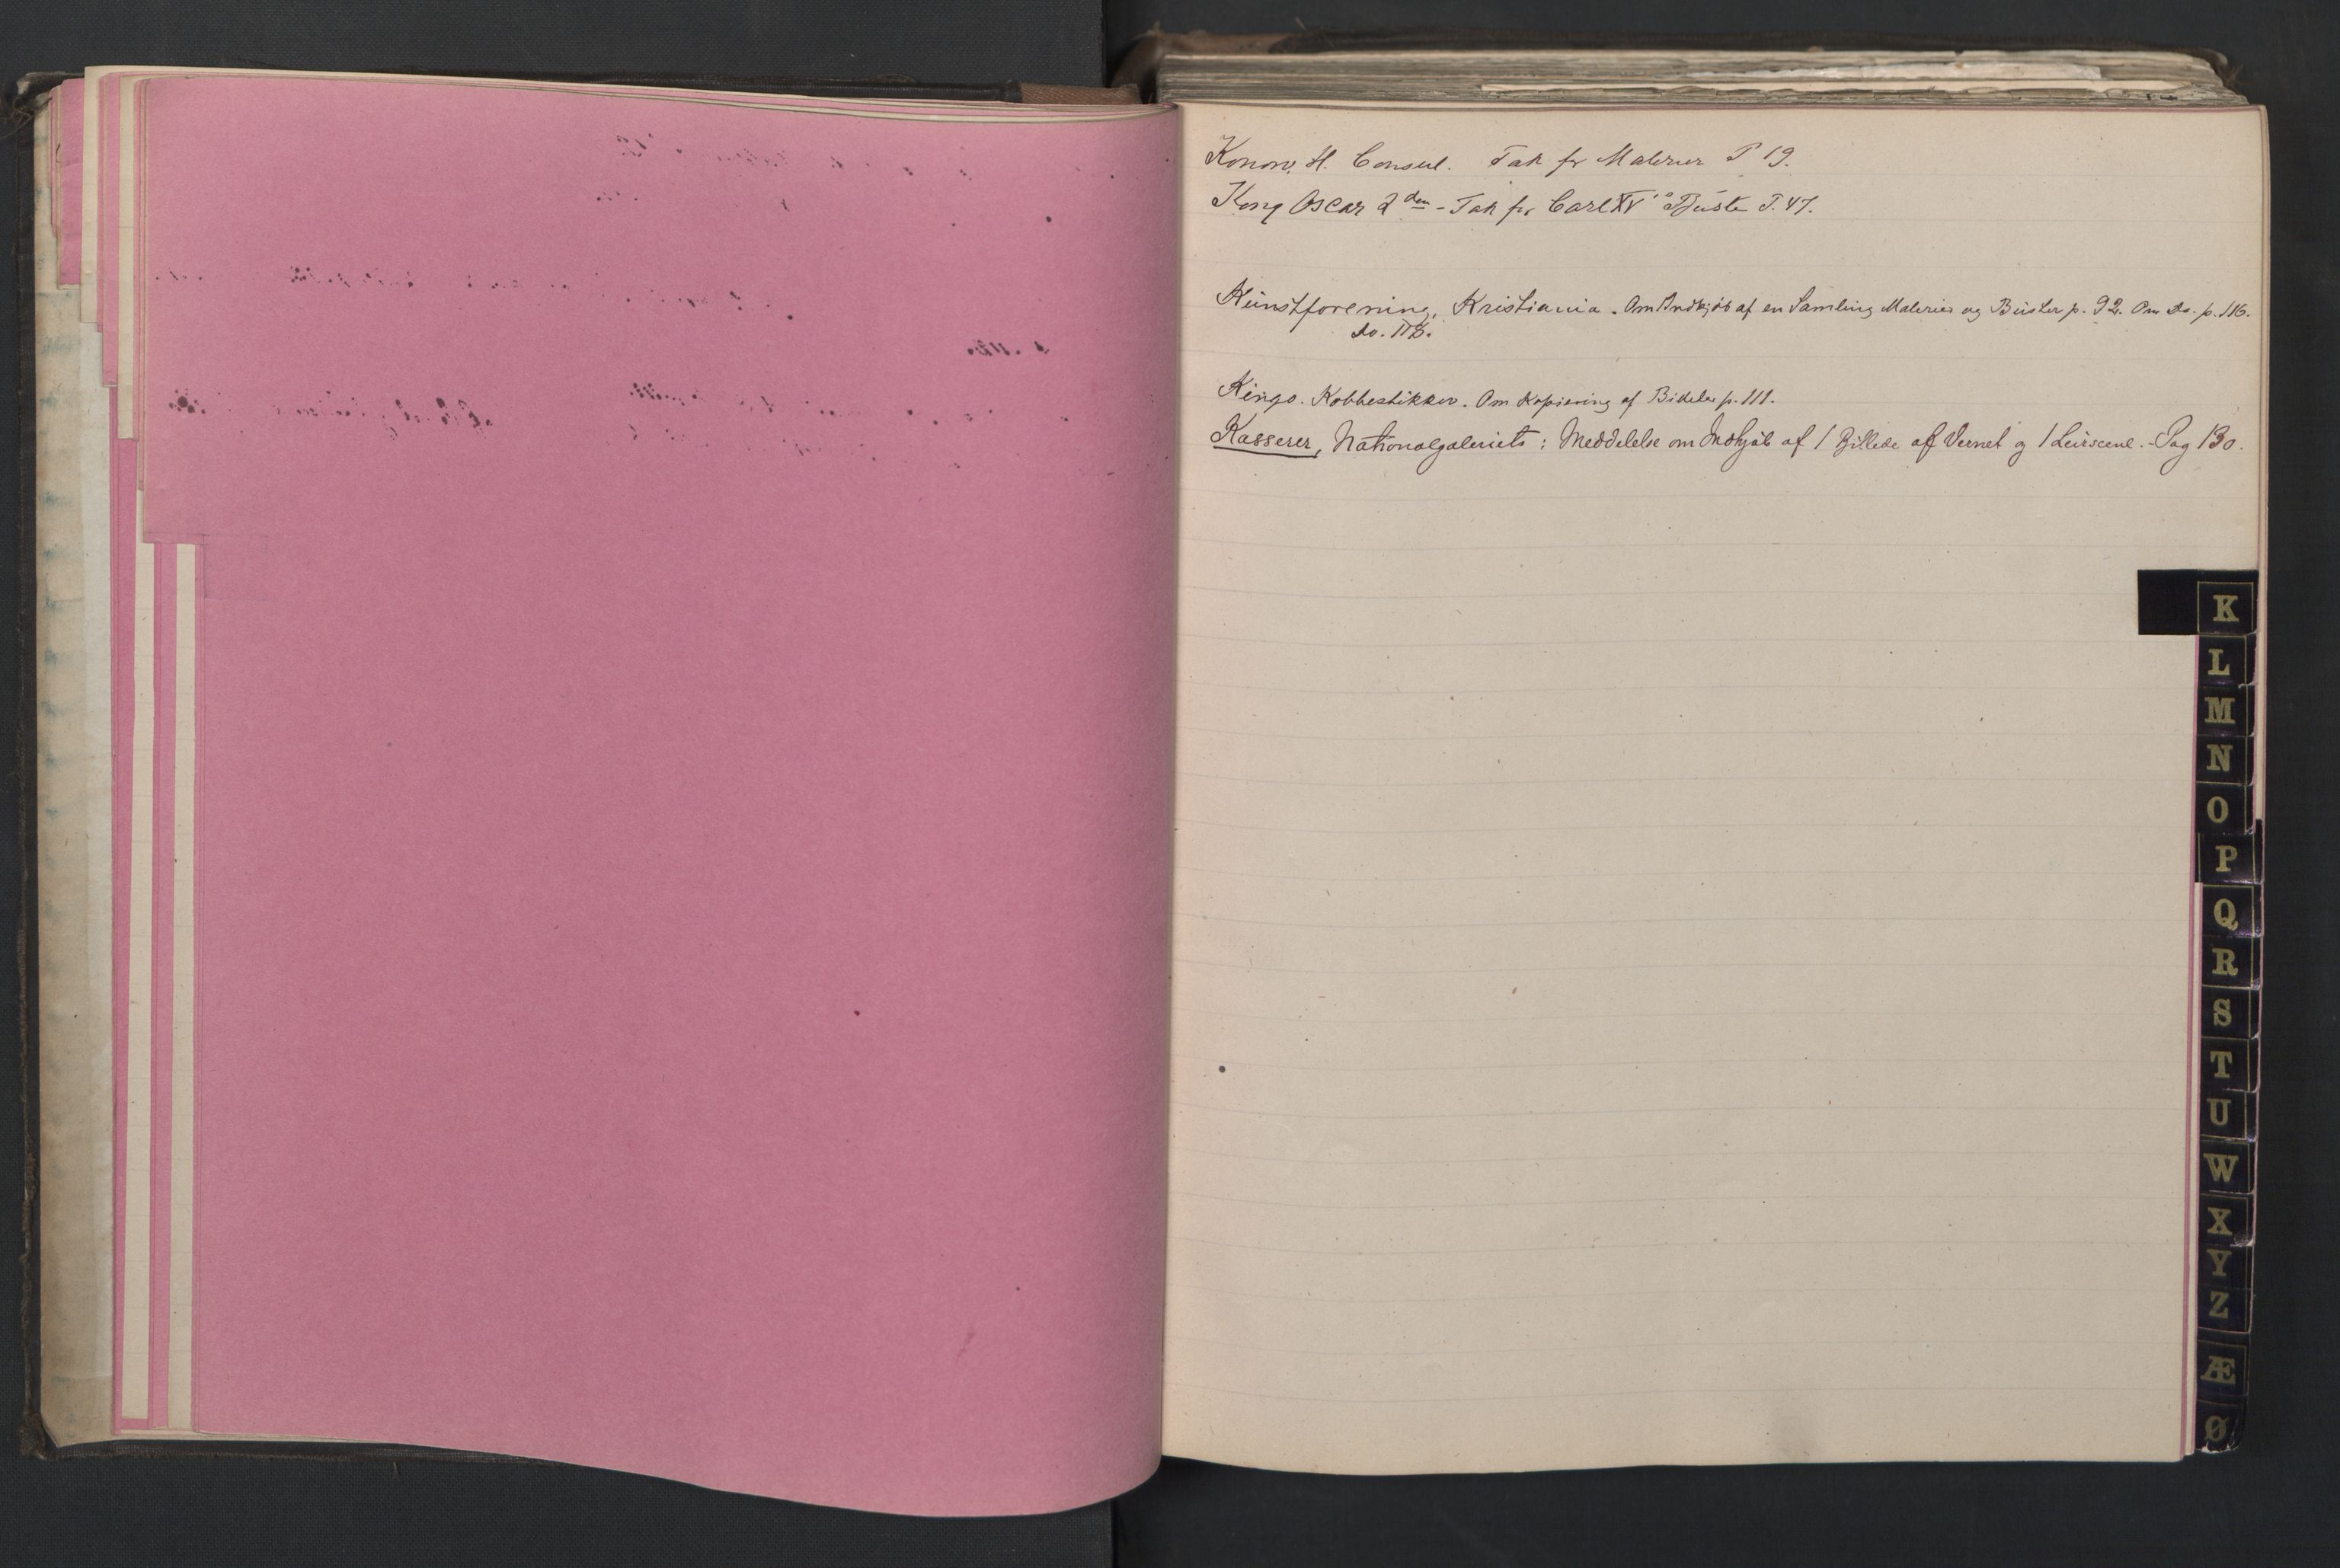 Konow, H. Consul. Tak for Malerier P 19.
Kong Oscar 2den - Tak for Carl XV's Büste P. 47.
Künstforening, Kristiania. Om Indkjöb af en Samling Malerier og Büster p. 92. Om do. p. 116.
do. 118.
Kings. Kobberstikker. Om Kopiering af Billeder p. 111.
Kasserer, Nationalgaleriets: Meddelelse om Indkjøb af 1 Billede af Vernet og 1 Leirscene. - Pag 130.
K
L
M
N
O
P
Q
R
S
T
U
W
X
Y
Z
Æ
Ø